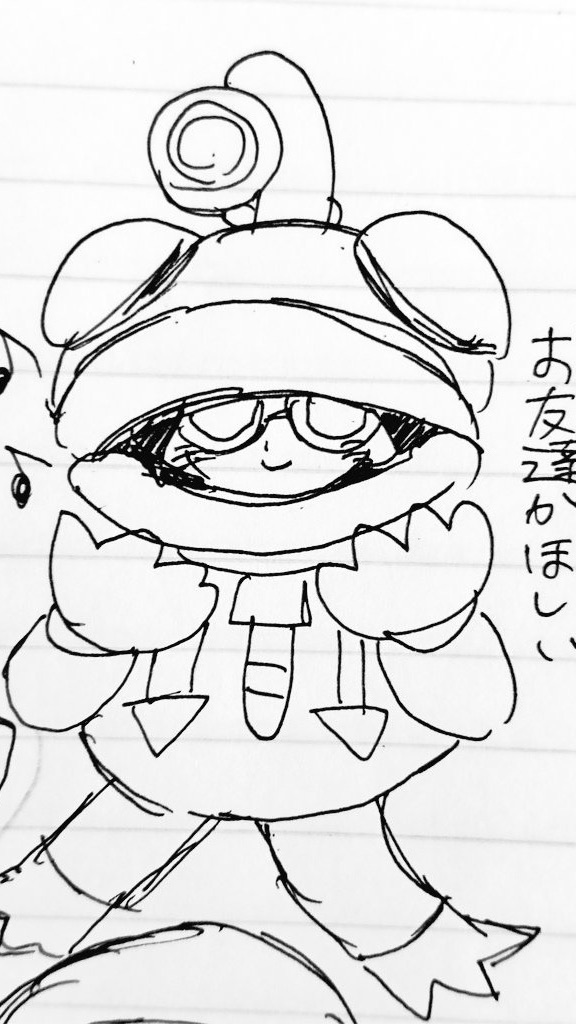 お友達がほしい